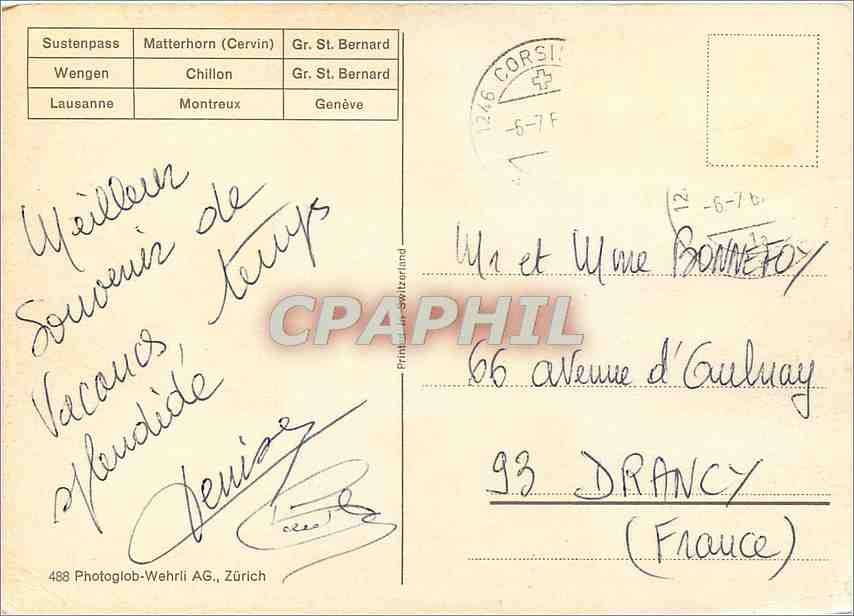 Sustenpass Matterhorn (Cervin) Gr. St. Bernard
Wengen Chillon Gr. St. Bernard
Lausanne Montreux Genève
1246 CORSI
-6-7
12.
-6-7
Meilleur
Souvenir de
Vacances, temps
splendide
Denise
488 Photoglob-Wehrli AG., Zürich
Printed in Switzerland
CPAPHIL
Mr et Mme BONNEFOY
66 avenue d'Aulnay
93 DRANCY
(France)